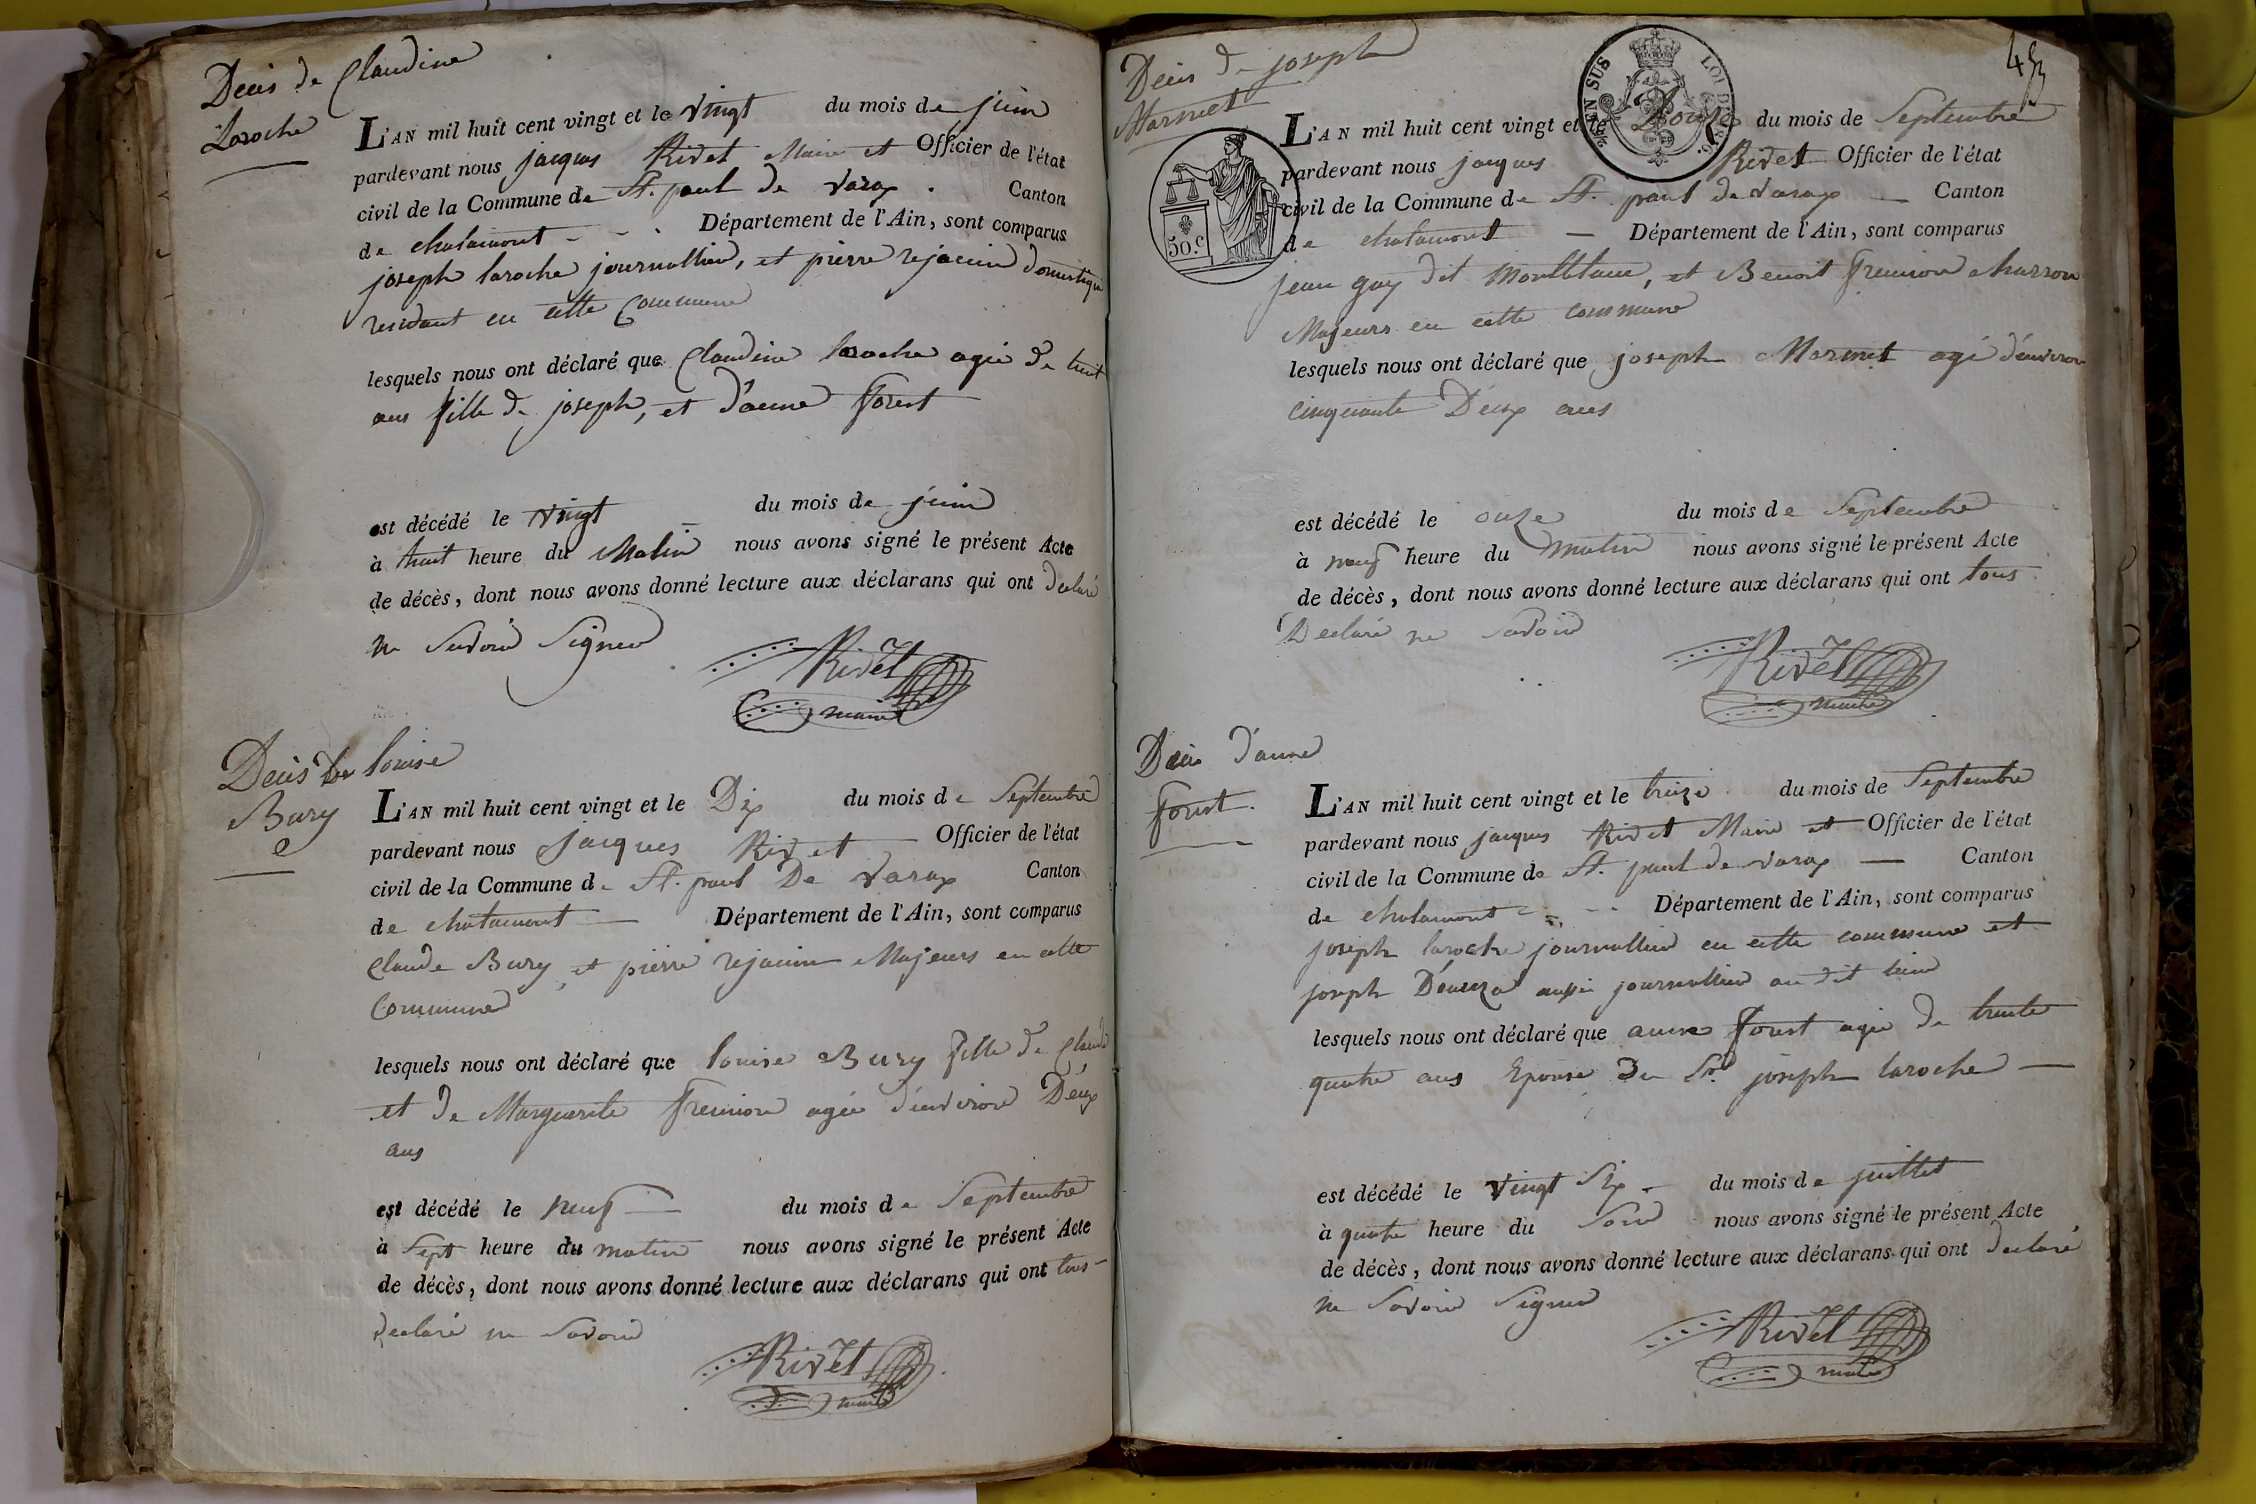 Decès de Claudine
Laroche
L'AN mil huit cent vingt et le vingt du mois de juin
pardevant nous jacques Rivet Maire et Officier de l'état
civil de la Commune de St. paul de varax . Canton
de chalamont - - . Département de l'Ain, sont comparus
joseph laroche journallier, et pierre rejaunier domestique
residant en cette Commune
lesquels nous ont déclaré que Claudine laroche agée de huit
ans fille de joseph, et d'anne forest
est décédé le vingt du mois de juin
à huit heure du Matin nous avons signé le présent Acte
de décès, dont nous avons donné lecture aux déclarans qui ont declaré
ne Savoir Signer
Rivet
maire
Decès de louise
Bury
L'AN mil huit cent vingt et le Dix du mois de Septembre
pardevant nous Jacques Rivet Officier de l'état
civil de la Commune de St. paul De varax Canton
de chalamont — Département de l'Ain, sont comparus
Claude Bury et pierre Majeurs en cette
Commune
lesquels nous ont déclaré que louise Bury fille de Claude
et de Marguerite agée d'environ Deux
ans
est décédé le neuf — du mois de Septembre
à Sept heure du matin nous avons signé le présent Acte
de décès, dont nous avons donné lecture aux déclarans qui ont tous
declaré ne Savoir
Rivet
maire
453
Decès de joseph
Marmet
SUS
LOI DE
50.c
L'AN mil huit cent vingt et le Douze du mois de Septembre
pardevant nous jacques Rivet Officier de l'état
civil de la Commune de St. paul de varax — Canton
de chalamont — Département de l'Ain, sont comparus
jean guy dit et Benoit charron
Majeurs en cette commune
lesquels nous ont déclaré que joseph Marmet agé d'environ
cinquante Deux ans
est décédé le onze du mois de Septembre
à neuf heure du matin nous avons signé le présent Acte
de décès, dont nous avons donné lecture aux déclarans qui ont tous
Declaré ne savoir
Rivet
maire
Decès d'anne
forest.
L'AN mil huit cent vingt et le treize du mois de Septembre
pardevant nous jacques Rivet Maire et Officier de l'état
civil de la Commune de St. paul de varax — Canton
de chalamont - - - Département de l'Ain, sont comparus
joseph laroche journallier en cette commune et
joseph aussi journallier au dit lieu
lesquels nous ont déclaré que anne forest agée de trente
quatre ans Epouse du Sr. joseph laroche —
est décédé le vingt Six - du mois de juillet
à quatre heure du Soir nous avons signé le présent Acte
de décès, dont nous avons donné lecture aux déclarans qui ont declaré
ne Savoir Signer
Rivet
maire